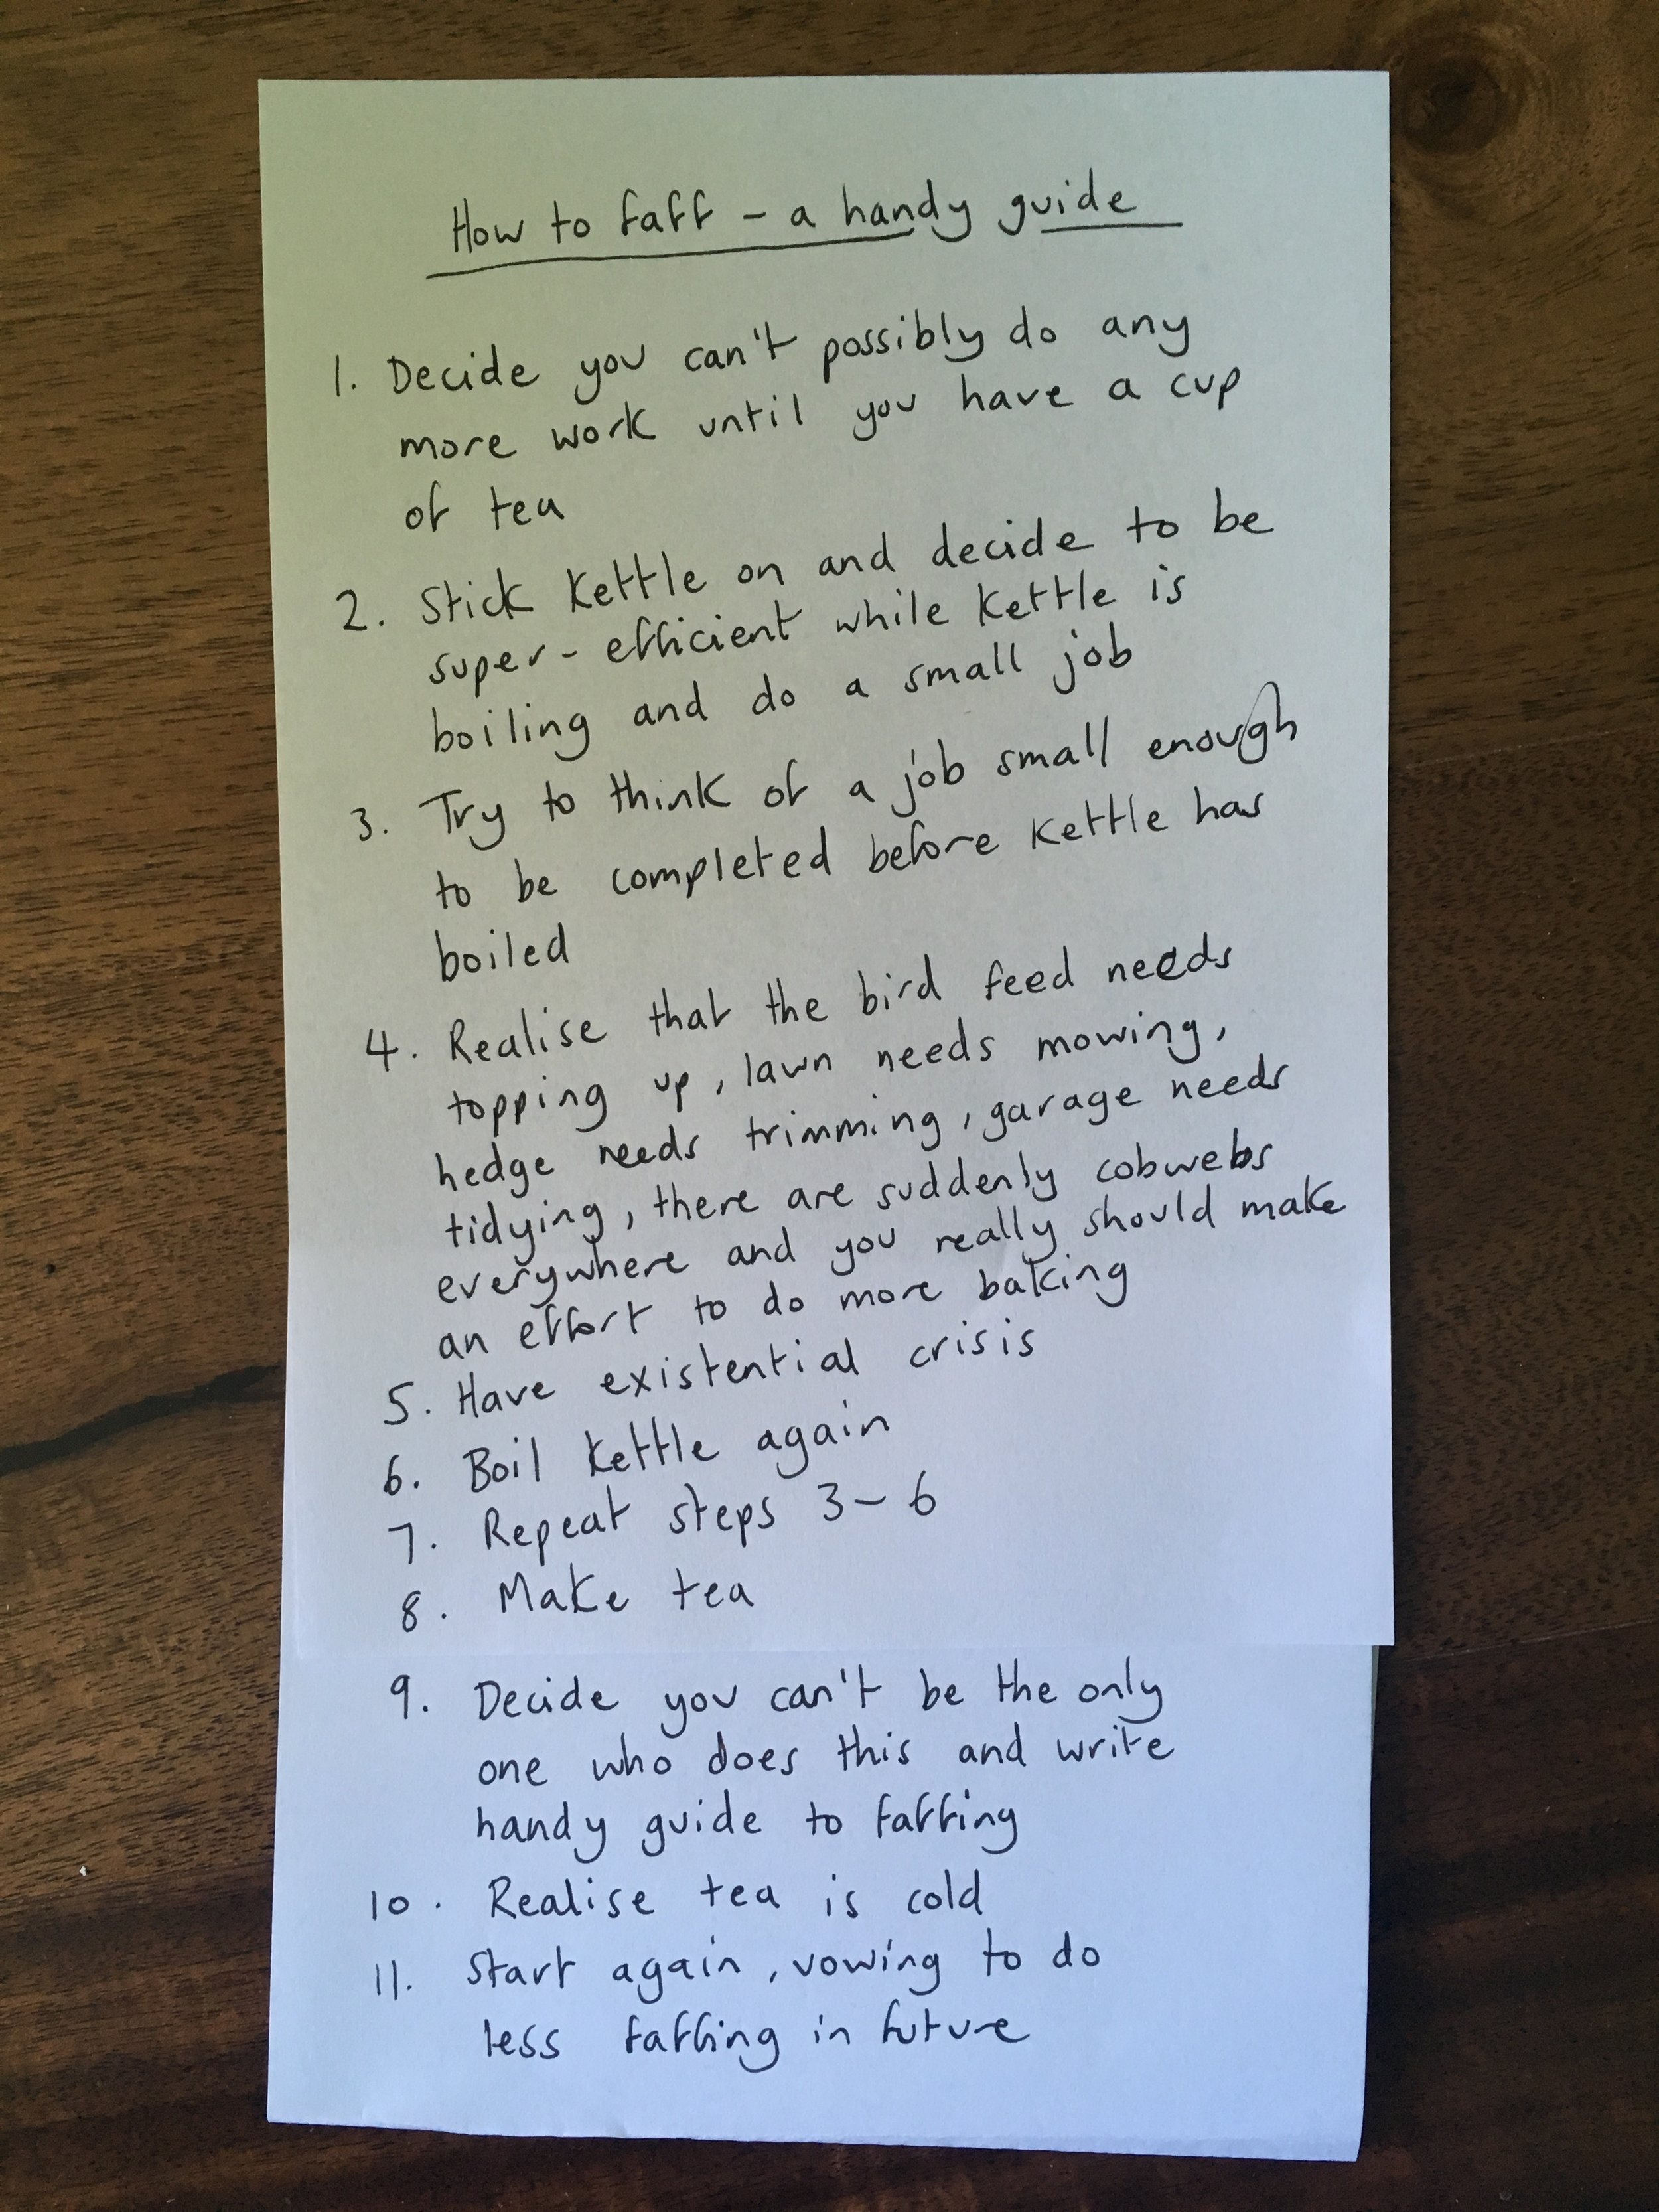 How to faff - a handy guide
1. Decide you can't possibly do any
more work until you have a cup
of tea
2. Stick kettle on and decide to be
super-efficient while kettle is
boiling and do a small job
3. Try to think of a job small enough
to be completed before kettle has
boiled
4. Realise that the bird feed needs
topping up, lawn needs mowing,
hedge needs trimming, garage needs
tidying, there are suddenly cobwebs
everywhere and you really should make
an effort to do more baking
5. Have existential crisis
6. Boil kettle again
7. Repeat steps 3-6
8. Make tea
9. Decide you can't be the only
one who does this and write
handy guide to faffing
10. Realise tea is cold
11. Start again, vowing to do
less faffing in future